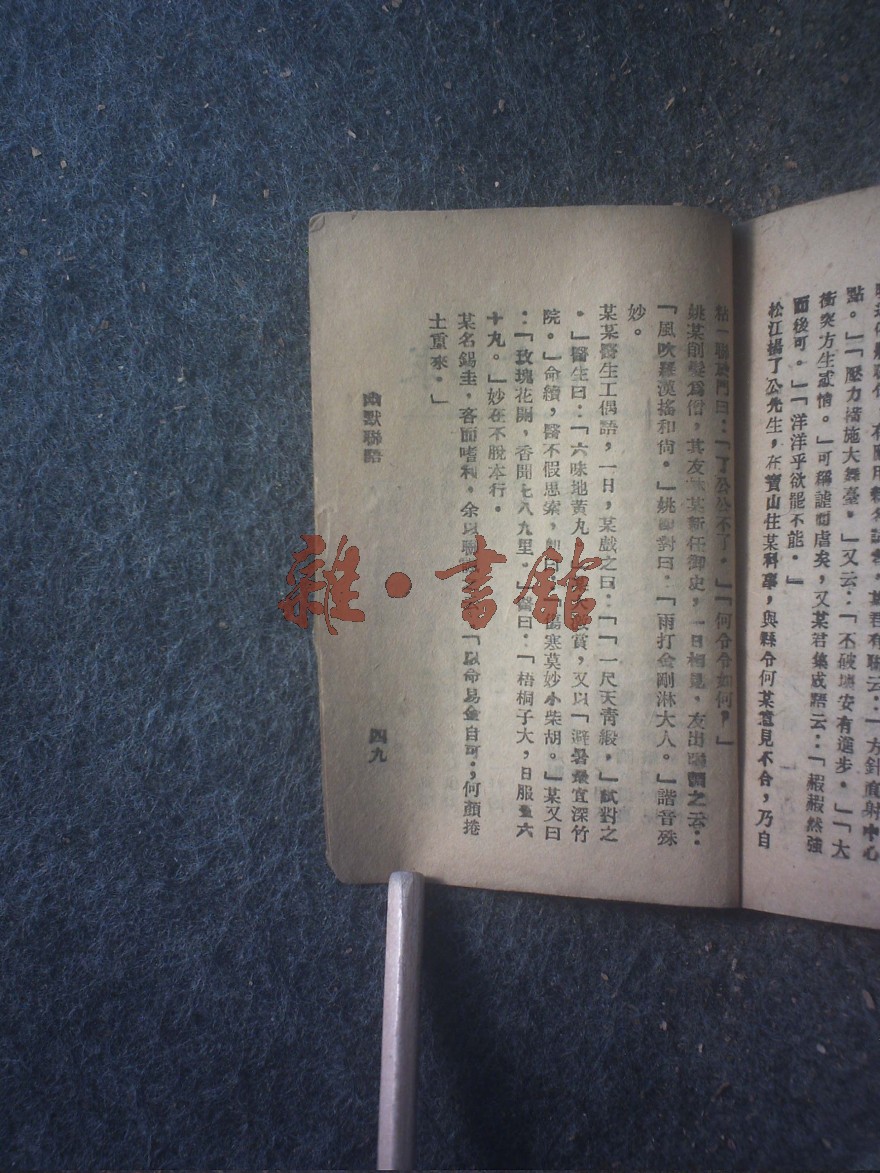 點。」「壓力措施大舞臺。」又云：「不破壞安有進步。」「大
衝突方生感情。」可稱謔而虐矣，又某君集成語云：「綴綴然強
而後可。」「洋洋乎欲罷不能。」
松江楊了公先生，在寶山任某科事，與縣令何某意見不合，乃自
粘一聯於門曰：「了公公不了。」「何令令如何，」
姚某削髮爲僧，其友某新任御史，一日相見，友出聯嘲之云：
「風吹羅漢搖和尙。」姚卽對曰。「雨打金剛淋大人。」諧音殊
妙。
某某醫生工偶語，一日，某戲之曰：「「一尺天靑緞。」試對之
。」醫生曰：「六味地黄九。」賞，又以「避暑最宜深竹
院。」命續，醫不假思索，卽曰傷寒莫妙小柴胡。」某又曰
：「玫瑰花開，香聞七八九里。」醫曰：「梧桐子大，日服五六
十九。」妙在不脫本行。
某名錫圭，吝而嗜利，余以聯「以命易金自可；何顏捲
土重來。」
幽默聯語
四九
雜·書館